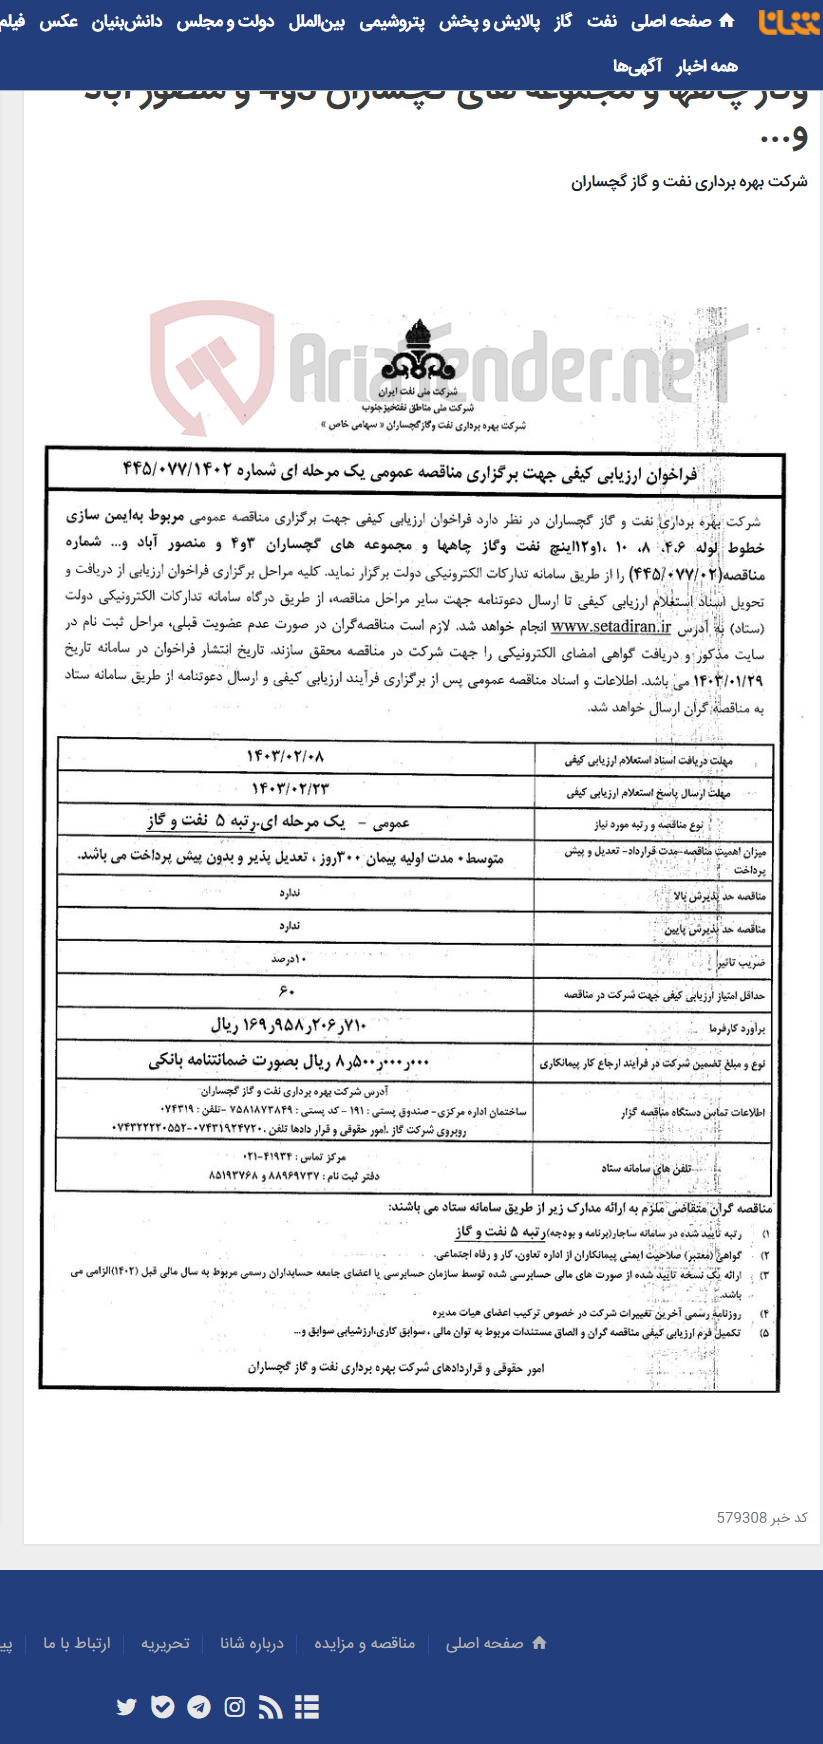 شانا
صفحه اصلی نفت گاز پالایش و پخش پتروشیمی بین‌الملل دولت و مجلس دانش‌بنیان عکس فیلم
همه اخبار آگهی‌ها
وگاز چاهها و مجموعه های گچساران 3و4 و منصور آباد
و...
شرکت بهره برداری نفت و گاز گچساران
AriaTender.neT
شرکت ملی نفت ایران
شرکت ملی مناطق نفتخیز جنوب
شرکت بهره برداری نفت وگاز گچساران « سهامی خاص »
فراخوان ارزیابی کیفی جهت برگزاری مناقصه عمومی یک مرحله ای شماره ۴۴۵/۰۷۷/۱۴۰۲
شرکت بهره برداری نفت و گاز گچساران در نظر دارد فراخوان ارزیابی کیفی جهت برگزاری مناقصه عمومی مربوط به‌ایمن سازی
خطوط لوله ۴،۶، ۸، ۱۰ ،۱و۱۲اینچ نفت وگاز چاهها و مجموعه های گچساران ۳و۴ و منصور آباد و... شماره
مناقصه(۴۴۵/۰۷۷/۰۲) را از طریق سامانه تدارکات الکترونیکی دولت برگزار نماید. کلیه مراحل برگزاری فراخوان ارزیابی از دریافت و
تحویل اسناد استعلام ارزیابی کیفی تا ارسال دعوتنامه جهت سایر مراحل مناقصه، از طریق درگاه سامانه تدارکات الکترونیکی دولت
(ستاد) به آدرس www.setadiran.ir انجام خواهد شد. لازم است مناقصه‌گران در صورت عدم عضویت قبلی، مراحل ثبت نام در
سایت مذکور و دریافت گواهی امضای الکترونیکی را جهت شرکت در مناقصه محقق سازند. تاریخ انتشار فراخوان در سامانه تاریخ
۱۴۰۳/۰۱/۲۹ می باشد. اطلاعات و اسناد مناقصه عمومی پس از برگزاری فرآیند ارزیابی کیفی و ارسال دعوتنامه از طریق سامانه ستاد
به مناقصه گران ارسال خواهد شد.
مهلت دریافت اسناد استعلام ارزیابی کیفی ۱۴۰۳/۰۲/۰۸
مهلت ارسال پاسخ استعلام ارزیابی کیفی ۱۴۰۳/۰۲/۲۳
نوع مناقصه و رتبه مورد نیاز عمومی - یک مرحله ای.رتبه ۵ نفت و گاز
میزان اهمیت مناقصه-مدت قرارداد- تعدیل و پیش
پرداخت متوسط۰ مدت اولیه پیمان ۳۰۰روز ، تعدیل پذیر و بدون پیش پرداخت می باشد.
مناقصه حد پذیرش بالا ندارد
مناقصه حد پذیرش پایین ندارد
ضریب تاثیر ۱۰درصد
حداقل امتیاز ارزیابی کیفی جهت شرکت در مناقصه ۶۰
برآورد کارفرما ۱۶۹٫۹۵۸٫۲۰۶٫۷۱۰ ریال
نوع و مبلغ تضمین شرکت در فرآیند ارجاع کار پیمانکاری ۸٫۵۰۰٫۰۰۰٫۰۰۰ ریال بصورت ضمانتنامه بانکی
اطلاعات تماس دستگاه مناقصه گزار آدرس شرکت بهره برداری نفت و گاز گچساران
ساختمان اداره مرکزی- صندوق پستی : ۱۹۱ - کد پستی : ۷۵۸۱۸۷۳۸۴۹ -تلفن : ۰۷۴۳۱۹
روبروی شرکت گاز .امور حقوقی و قرار دادها تلفن .۰۷۴۳۱۹۲۴۷۲۰-۰۷۴۳۲۲۲۰۵۵۲
تلفن های سامانه ستاد مرکز تماس : ۴۱۹۳۴-۰۲۱
دفتر ثبت نام : ۸۸۹۶۹۷۳۷ و ۸۵۱۹۳۷۶۸
مناقصه گران متقاضی ملزم به ارائه مدارک زیر از طریق سامانه ستاد می باشند:
۱) رتبه تایید شده در سامانه ساجار(برنامه و بودجه)رتبه ۵ نفت و گاز
۲) گواهی (معتبر) صلاحیت ایمنی پیمانکاران از اداره تعاون، کار و رفاه اجتماعی.
۳) ارائه یک نسخه تایید شده از صورت های مالی حسابرسی شده توسط سازمان حسابرسی یا اعضای جامعه حسابداران رسمی مربوط به سال مالی قبل (۱۴۰۲)الزامی می
باشد.
۴) روزنامه رسمی آخرین تغییرات شرکت در خصوص ترکیب اعضای هیات مدیره
۵) تکمیل فرم ارزیابی کیفی مناقصه گران و الصاق مستندات مربوط به توان مالی ، سوابق کاری،ارزشیابی سوابق و...
امور حقوقی و قراردادهای شرکت بهره برداری نفت و گاز گچساران
کد خبر 579308
صفحه اصلی مناقصه و مزایده درباره شانا تحریریه ارتباط با ما